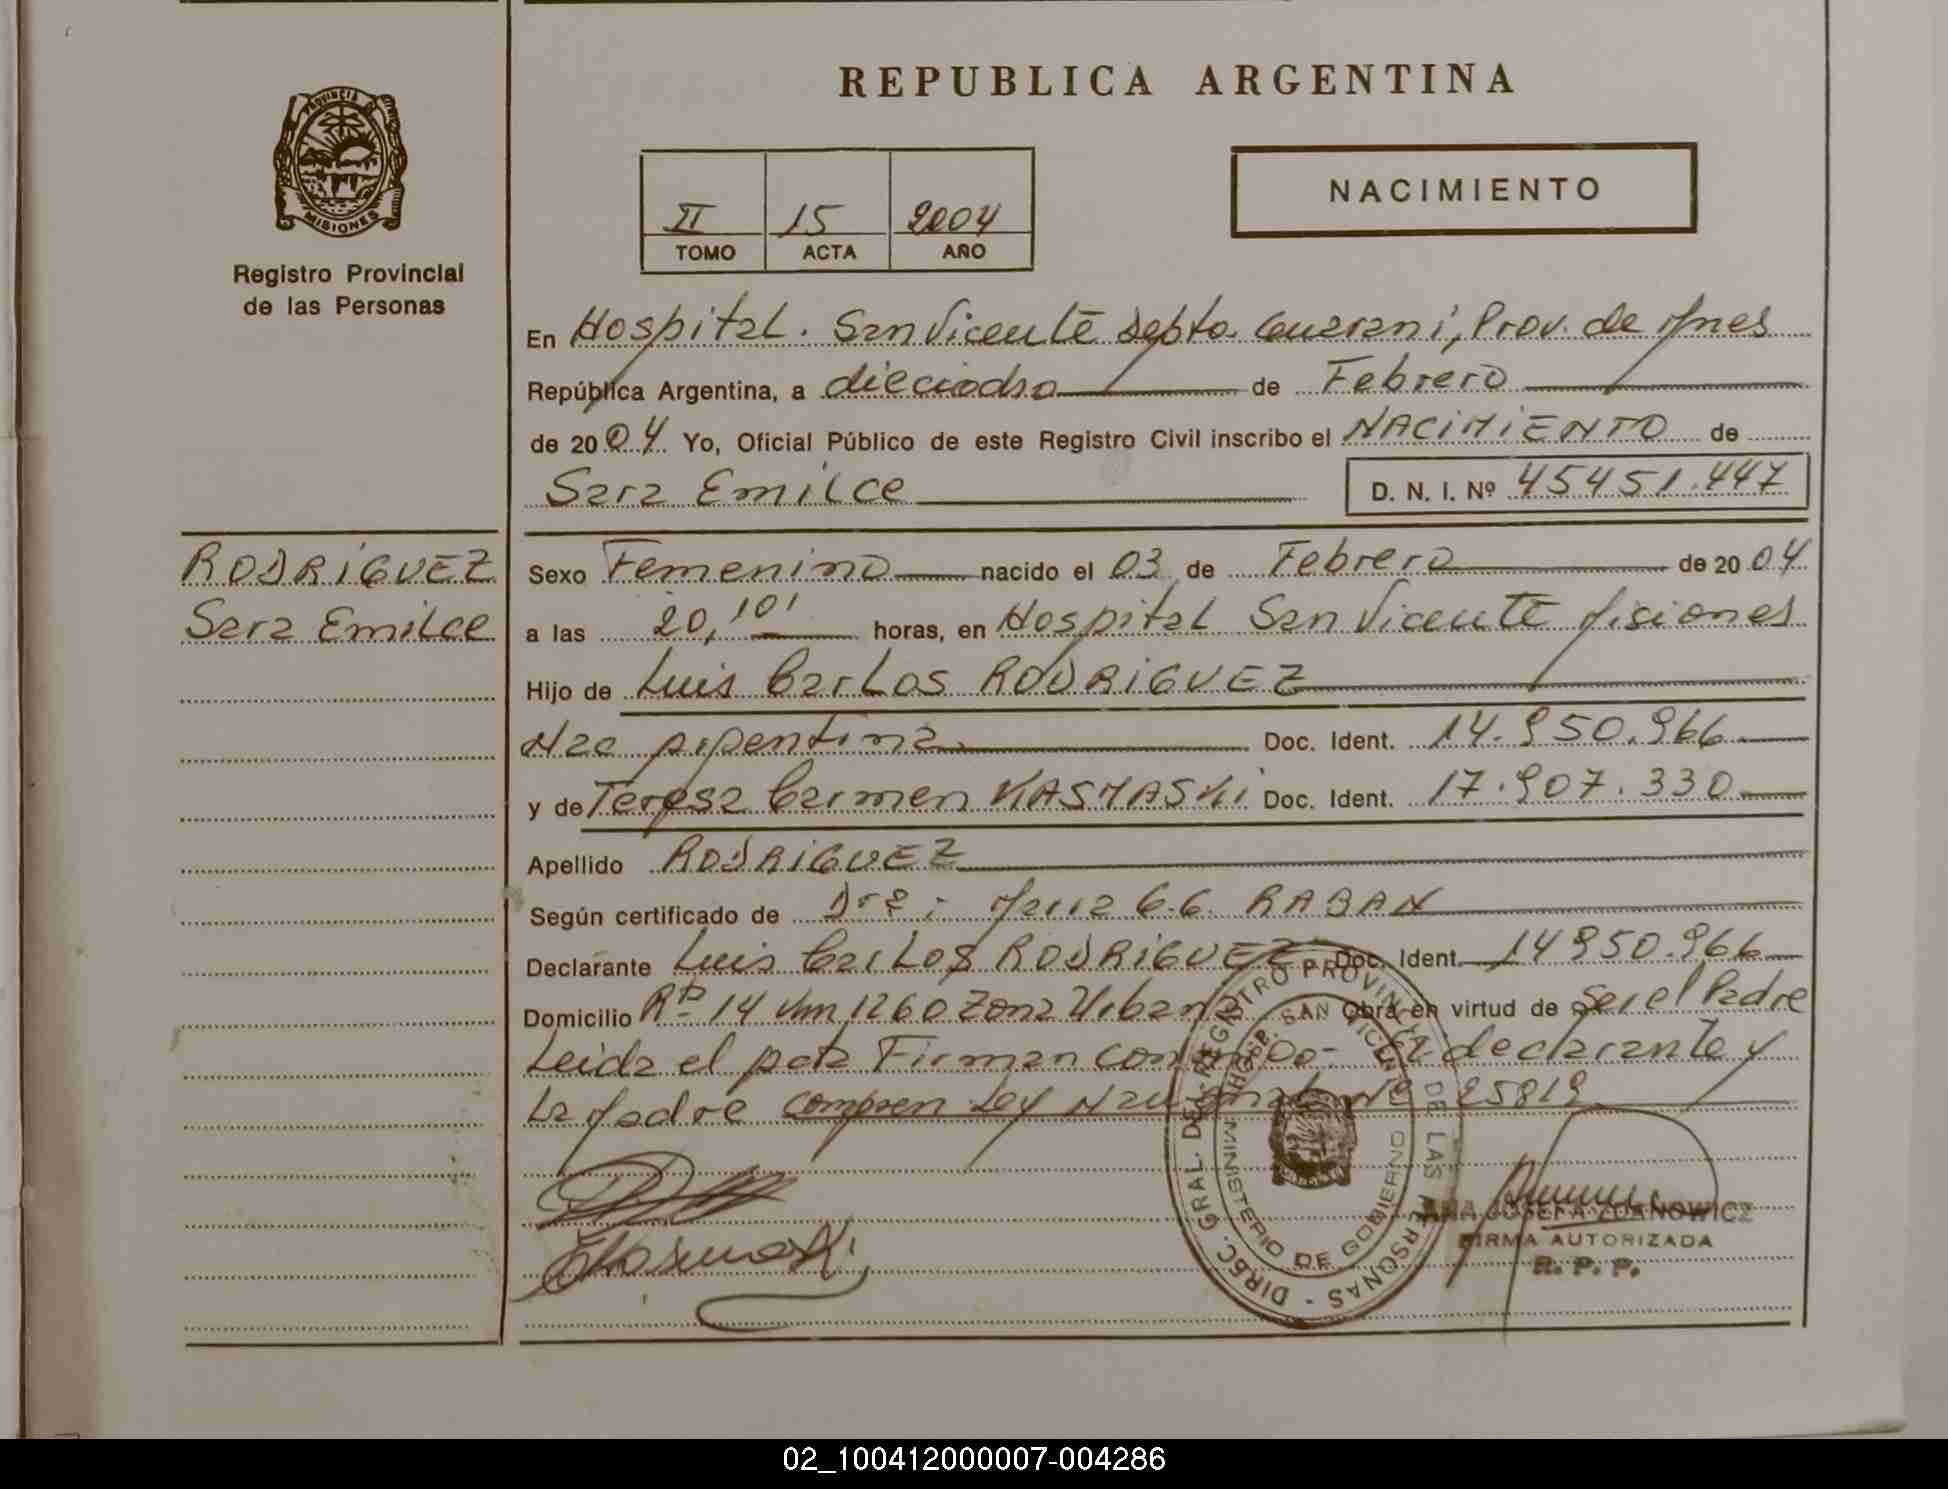 REPUBLICA ARGENTINA
PROVINCIA DE
MISIONES
Registro Provincial
de las Personas
II 15 2004
TOMO ACTA AÑO
NACIMIENTO
En Hospital. San Vicente Depto. Guarani, Prov. de Mnes
República Argentina, a dieciocho de Febrero
de 20 04 Yo, Oficial Público de este Registro Civil inscribo el NACIMIENTO de
Sara Emilce D. N. I. Nº 45451.447
RODRIGUEZ
Sara Emilce
Sexo Femenino nacido el 03 de Febrero de 20 04
a las 20,10' horas, en Hospital San Vicente Misiones
Hijo de Luis Carlos RODRIGUEZ
Nac Argentina Doc. Ident. 14.950.966
y de Teresa Carmen KASMASKi Doc. Ident. 17.907.330
Apellido RODRIGUEZ
Según certificado de Dra: Maria G.G. RABAN
Declarante Luis Carlos RODRIGUEZ Doc. Ident. 14950.966
Domicilio Rta 14 Km 1260 Zona Urbana Obra en virtud de Ser el Padre
Leida el Acta Firman con El declarante y
La Madre Ley Nº 25819
DIREC. GRAL. DEL REGISTRO PROVINCIAL DE LAS PERSONAS -
HOSP. SAN VICENTE
MINISTERIO DE GOBIERNO
ANA JOSEFA ZDANOWICZ
FIRMA AUTORIZADA
R. P. P.
02_100412000007-004286